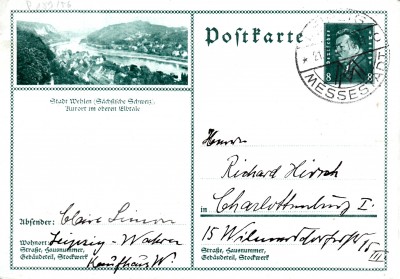 Postkarte
MESSESTADT
8 8
Stadt Wehlen (Sächsische Schweiz),
Kurort im oberen Elbtale
Herrn
Richard Hirsch
in Charlottenburg I.
15 Wilmersdorferstr 15 III
Straße, Hausnummer,
Gebäudeteil, Stockwerk
Absender: Claire Simon
Wohnort: Leipzig-Wahren
Straße, Hausnummer,
Gebäudeteil, Stockwerk Kaufhaus W.